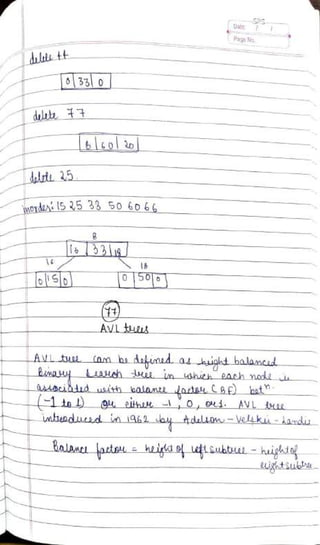 Date / /
Page No.
delete 44
0 | 33 | 0
delete 77
B | 60 | 20
delete 25
inorder: 15 25 33 50 60 66
B
16 | 33 | 18
16 18
0 | 15 | 0 0 | 50 | 0
77
AVL trees
AVL tree can be defined as height balanced
Binary Search tree in which each node is
associated with balance factor (BF) betn.
(-1 to 1) or either -1, 0, or 1. AVL tree
introduced in 1962 by Adelson - Velsku - Landis
Balance factor = height of left subtree - height of
right subtree